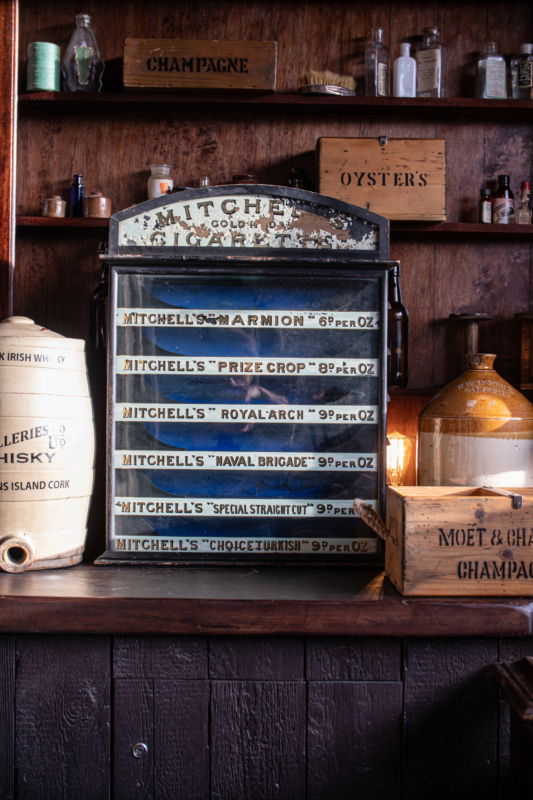 CHAMPAGNE
OYSTER'S
MITCHEL
GOLD
CIGARET
MITCHELL'S "MARMION" 6D PER OZ
MITCHELL'S "PRIZE CROP" 8D PER OZ
MITCHELL'S "ROYAL ARCH" 9D PER OZ
MITCHELL'S "NAVAL BRIGADE" 9D PER OZ
MITCHELL'S "SPECIAL STRAIGHT CUT" 9D PER
MITCHELL'S "CHOICE TURKISH" 9D PER OZ
K IRISH WHISKY
LLERIES CO LTD
HISKY
NS ISLAND CORK
MOËT & CHA
CHAMPAG